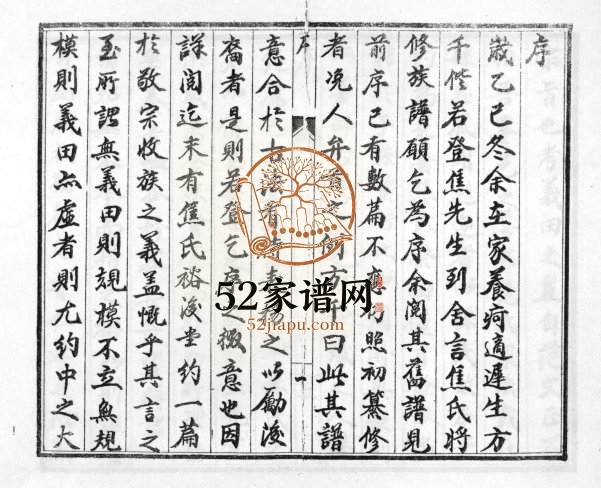 序
歲乙巳冬余在家養疴適遲生方
千偕若登焦先生到舍言焦氏將
修族譜願乞為序余閱其舊譜見
前序已有數篇不應 照初纂修
者況人弁 曰此其譜
序
一
意合於古 者 揚之以勵後
裔者是則若登乞序之 意也因
詳閱迄末有焦氏裕後堂約一篇
於敬宗收族之義蓋慨乎其言之
至所謂無義田則規模不立無規
模則義田亦虛者則尤約中之大
52家谱网
52jiapu.com